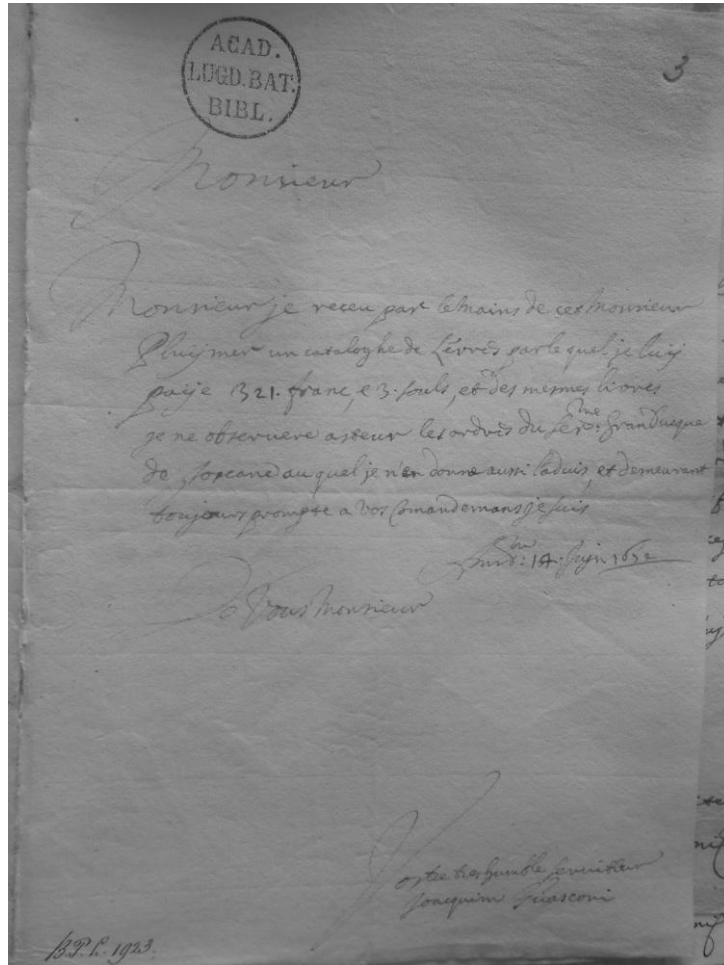 ACAD.
LUGD. BAT.
BIBL.
3
Monsieur
Monsieur je receu par le mains de cet Monsieur
Pluijmer un cataloghe de Livres par le quel je luij
paije 321. franc, e 3. souls, et des mesmes livres
je ne observere asteur les ordres du Ser.me Gran Ducque
de Toscane au quel je n'en donne aussi l'aduis, et demeurant
toujours prompte a vos Comandemans je suis
14.
De Vous Monsieur
Vostre tres humble seruiteur
Joacquim Guasconi
B.P.L. 1923.